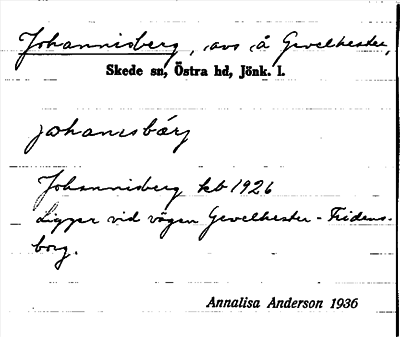 Johannisberg, avs å Gevelhester,
Skede sn, Östra hd, Jönk. l.
johanesbärj
Johannisberg kb 1926
Ligger vid vägen Gevelhester - Fridens-
borg.
Annalisa Anderson 1936